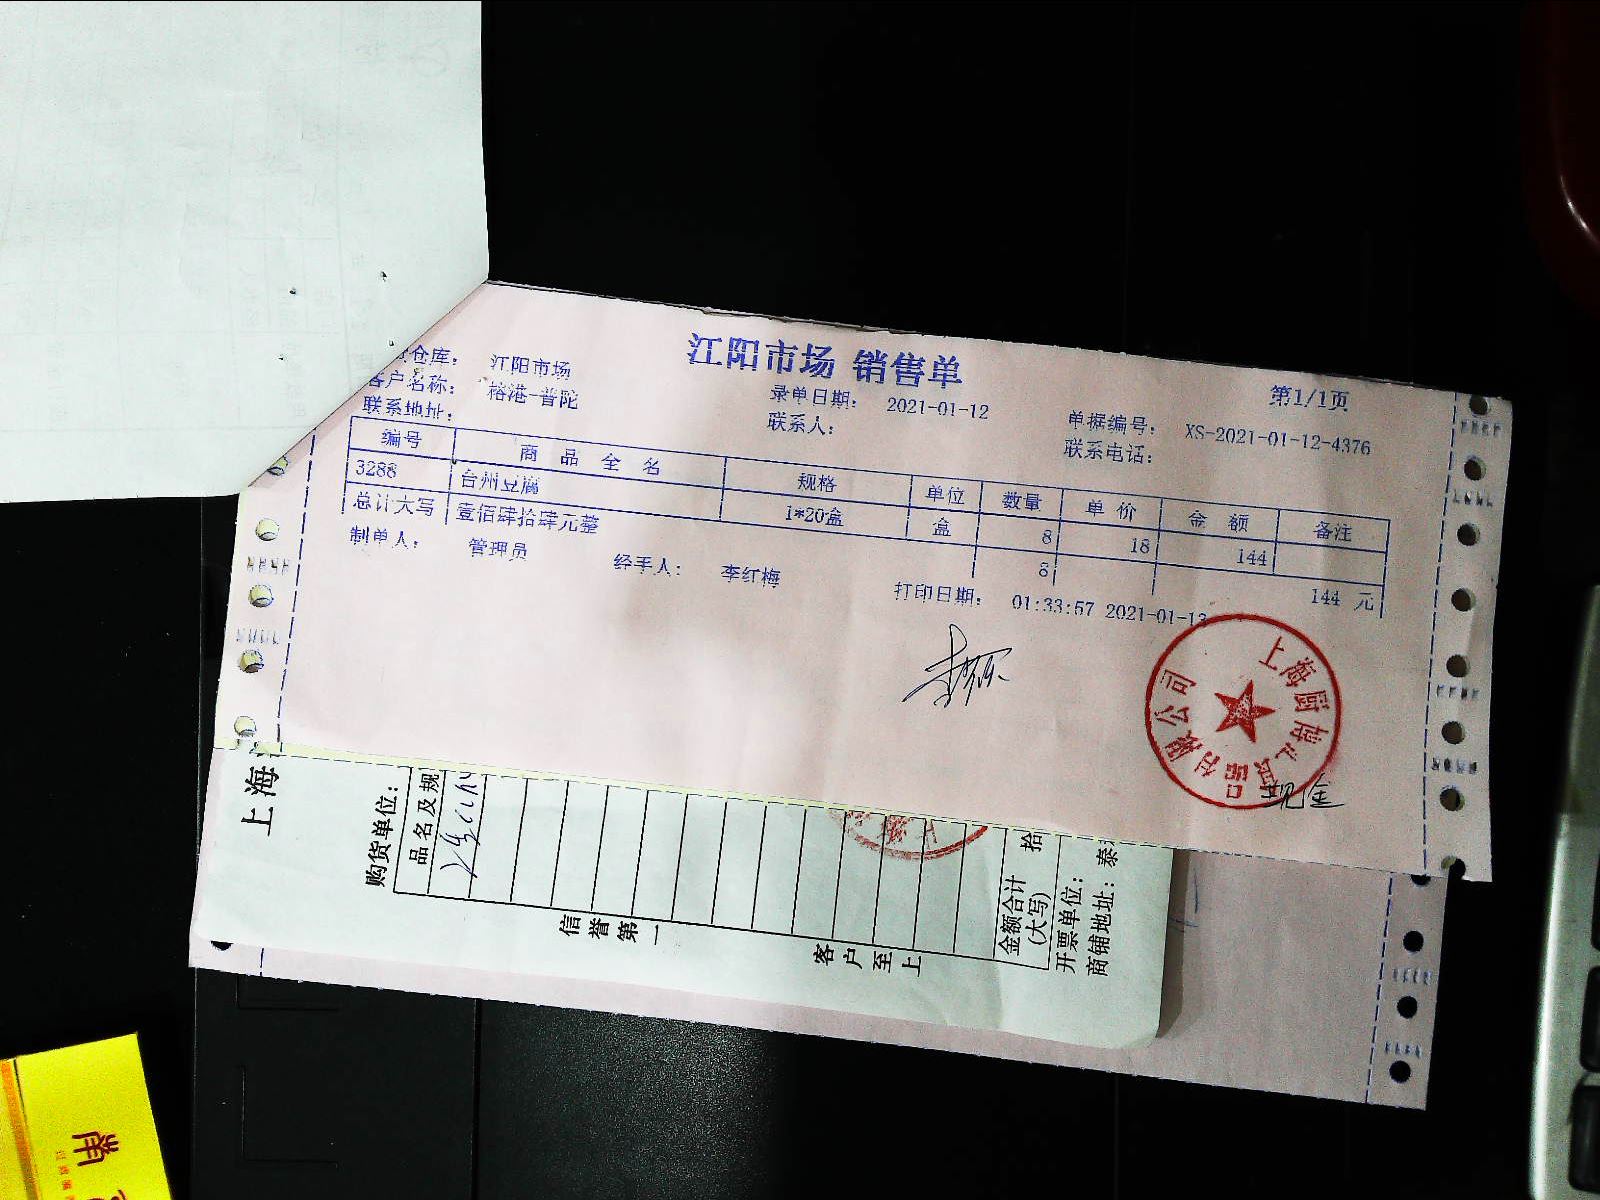 江阳市场 销售单
第1/1页
仓库： 江阳市场
客户名称： 榕港-普陀
录单日期： 2021-01-12
单据编号： XS-2021-01-12-4376
联系地址：
联系人：
联系电话：
编号 商品全名 规格 单位 数量 单价 金额 备注
3288 台州豆腐 1*20盒 盒 8 18 144
总计大写 壹佰肆拾肆元整 8 144 元
制单人： 管理员 经手人： 李红梅 打印日期： 01:33:57 2021-01-13
现金
上海
购货单位：
品名及规
信誉第一
客户至上
金额合计
(大写)
拾
开票单位：
商铺地址：泰